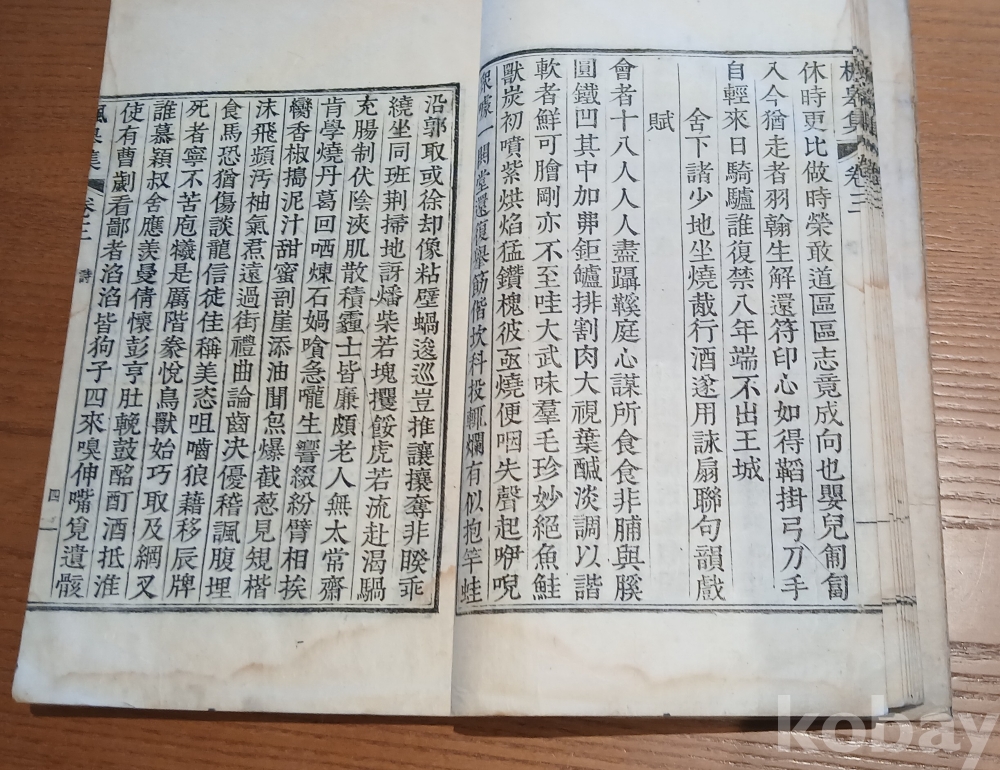 楓皐集 卷三
休時更比做時榮敢道區區志竟成向也嬰兒匍匐
入今猶走者羽翰生解還符印心如得鞱掛弓刀手
自輕來日騎驢誰復禁八年端不出王城
舍下諸少地坐燒胾行酒遂用詠扇聯句韻戲
賦
會者十八人人人盡躡鞵庭心謀所食食非脯與膎
圓鐵凹其中加弗鉅鑪排割肉大視葉醎淡調以諧
軟者鮮可膾剛亦不至哇大武味羣毛珍妙絕魚鮭
獸炭初噴紫烘焰猛鑽槐彼亟燒便咽失聲起咿唲
一閧堂還復擧筯偕坎科投輒爛有似抱竿蛙
沿郭取或徐却像粘壁蝸逡巡豈推讓攘奪非睽乖
繞坐同班荆掃地訝燔柴若塊攫餒虎若流赴渴騧
充腸制伏陰浹肌散積霾士皆廉頗老人無太常齋
肯學燒丹葛回哂煉石媧喰急嚨生響綴紛臂相挨
臠香椒搗泥汁甜蜜剖崖添油聞炰爆截葱見規楷
沫飛頻汚袖氣焄遠過街禮曲論齒决優稽諷腹埋
食馬恐猶傷談龍信徒佳稱美恣咀嚼狼藉移辰牌
死者寧不苦庖犧是厲階豢悅鳥獸始巧取及網叉
誰慕穎叔舍應羡曼倩懷彭亨肚輓鼓酩酊酒抵淮
使有曹劌看鄙者滔滔皆狗子四來嗅伸嘴覓遺骸
楓皐集 卷三 詩 四
kobay